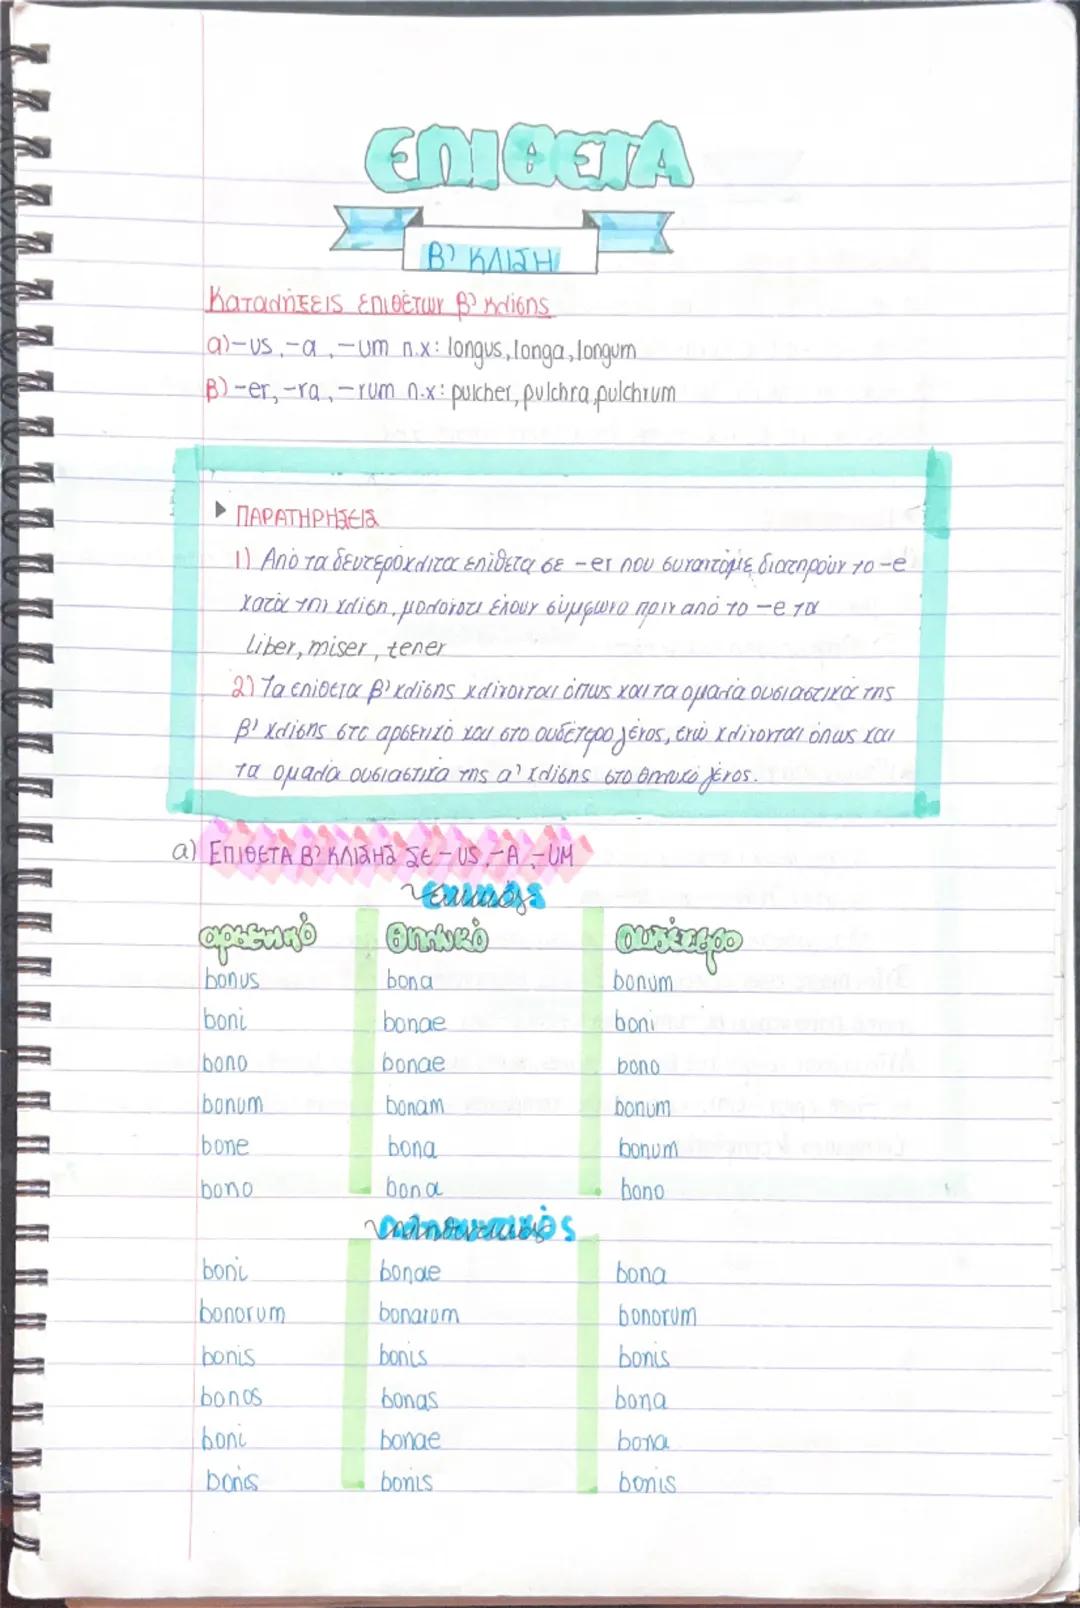 ΕΠΙΘΕΤΑ
Β' ΚΛΙΣΗ
Καταλήξεις επιθέτων β' κλίσης
α)-us, -a, -um π.χ: longus, longa, longum
β)-er, -ra, -rum π.χ: pulcher, pulchra, pulchrum
ΠΑΡΑΤΗΡΗΣΕΙΣ
1) Από τα δευτερόκλιτα επίθετα σε -er που συναντάμε, διατηρούν το -e
κατά την κλίση, μολονότι έχουν σύμφωνο πριν από το -e τα
liber, miser, tener
2) Τα επίθετα β' κλίσης κλίνονται όπως και τα ομαλά ουσιαστικά της
β' κλίσης στο αρσενικό και στο ουδέτερο γένος, ενώ κλίνονται όπως και
τα ομαλά ουσιαστικά της α' κλίσης στο θηλυκό γένος.
α) ΕΠΙΘΕΤΑ Β' ΚΛΙΣΗΣ ΣΕ -US, -A, -UM
Ενικός
αρσενικό θηλυκό ουδέτερο
bonus bona bonum
boni bonae boni
bono bonae bono
bonum bonam bonum
bone bona bonum
bono bona bono
Πληθυντικός
boni bonae bona
bonorum bonarum bonorum
bonis bonis bonis
bonos bonas bona
boni bonae bona
bonis bonis bonis